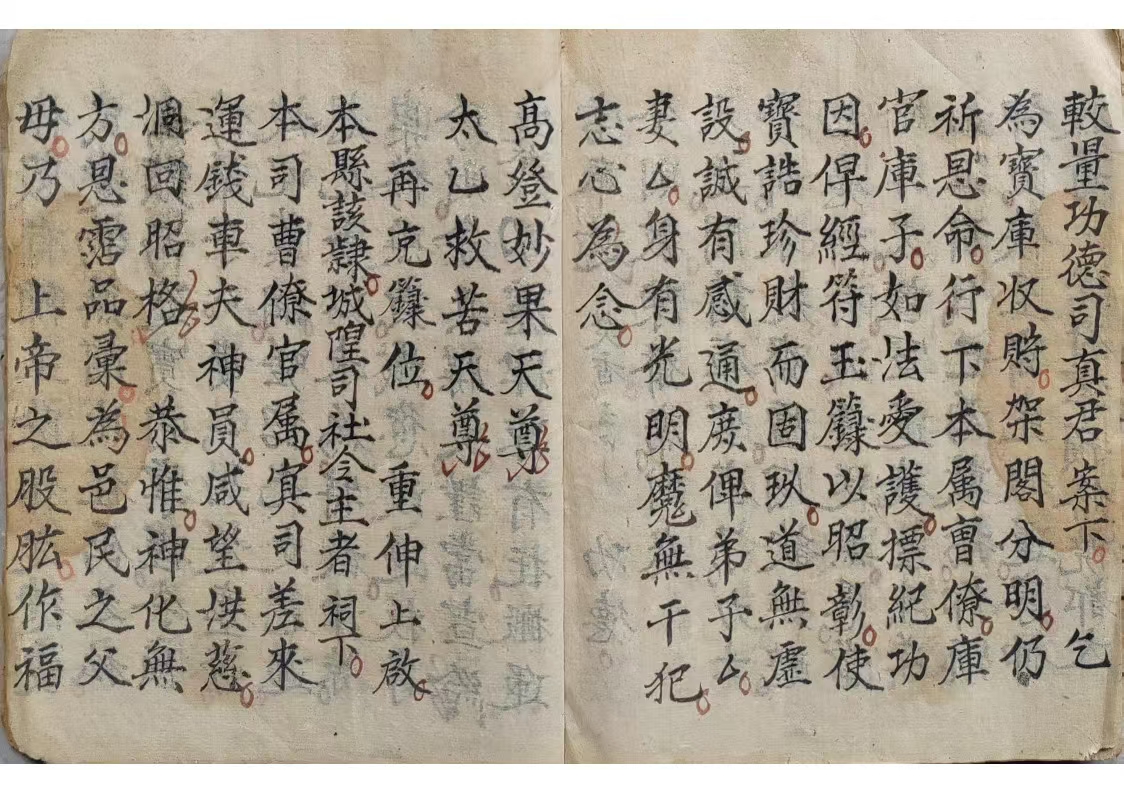 較量功德司真君案下乞
為寶庫收貯架閣分明仍
祈恩命行下本属曺僚庫
官庫子如法愛護摽紀功
因俾經符玉籙以昭彰使
寶誥珍財而固㺯道無虛
設誠有感通庻俾弟子厶
妻厶身有光明魔無干犯
志心為念
髙登妙果天尊
太乙救苦天尊
再克籙位重伸上啟
本縣該隸城隍司社令主者祠下
本司曹僚官属冥司差來
運錢車夫神員咸望洪慈
洞回昭格恭惟神化無
方恩霑品彙為邑民之父
毋乃上帝之股肱作福